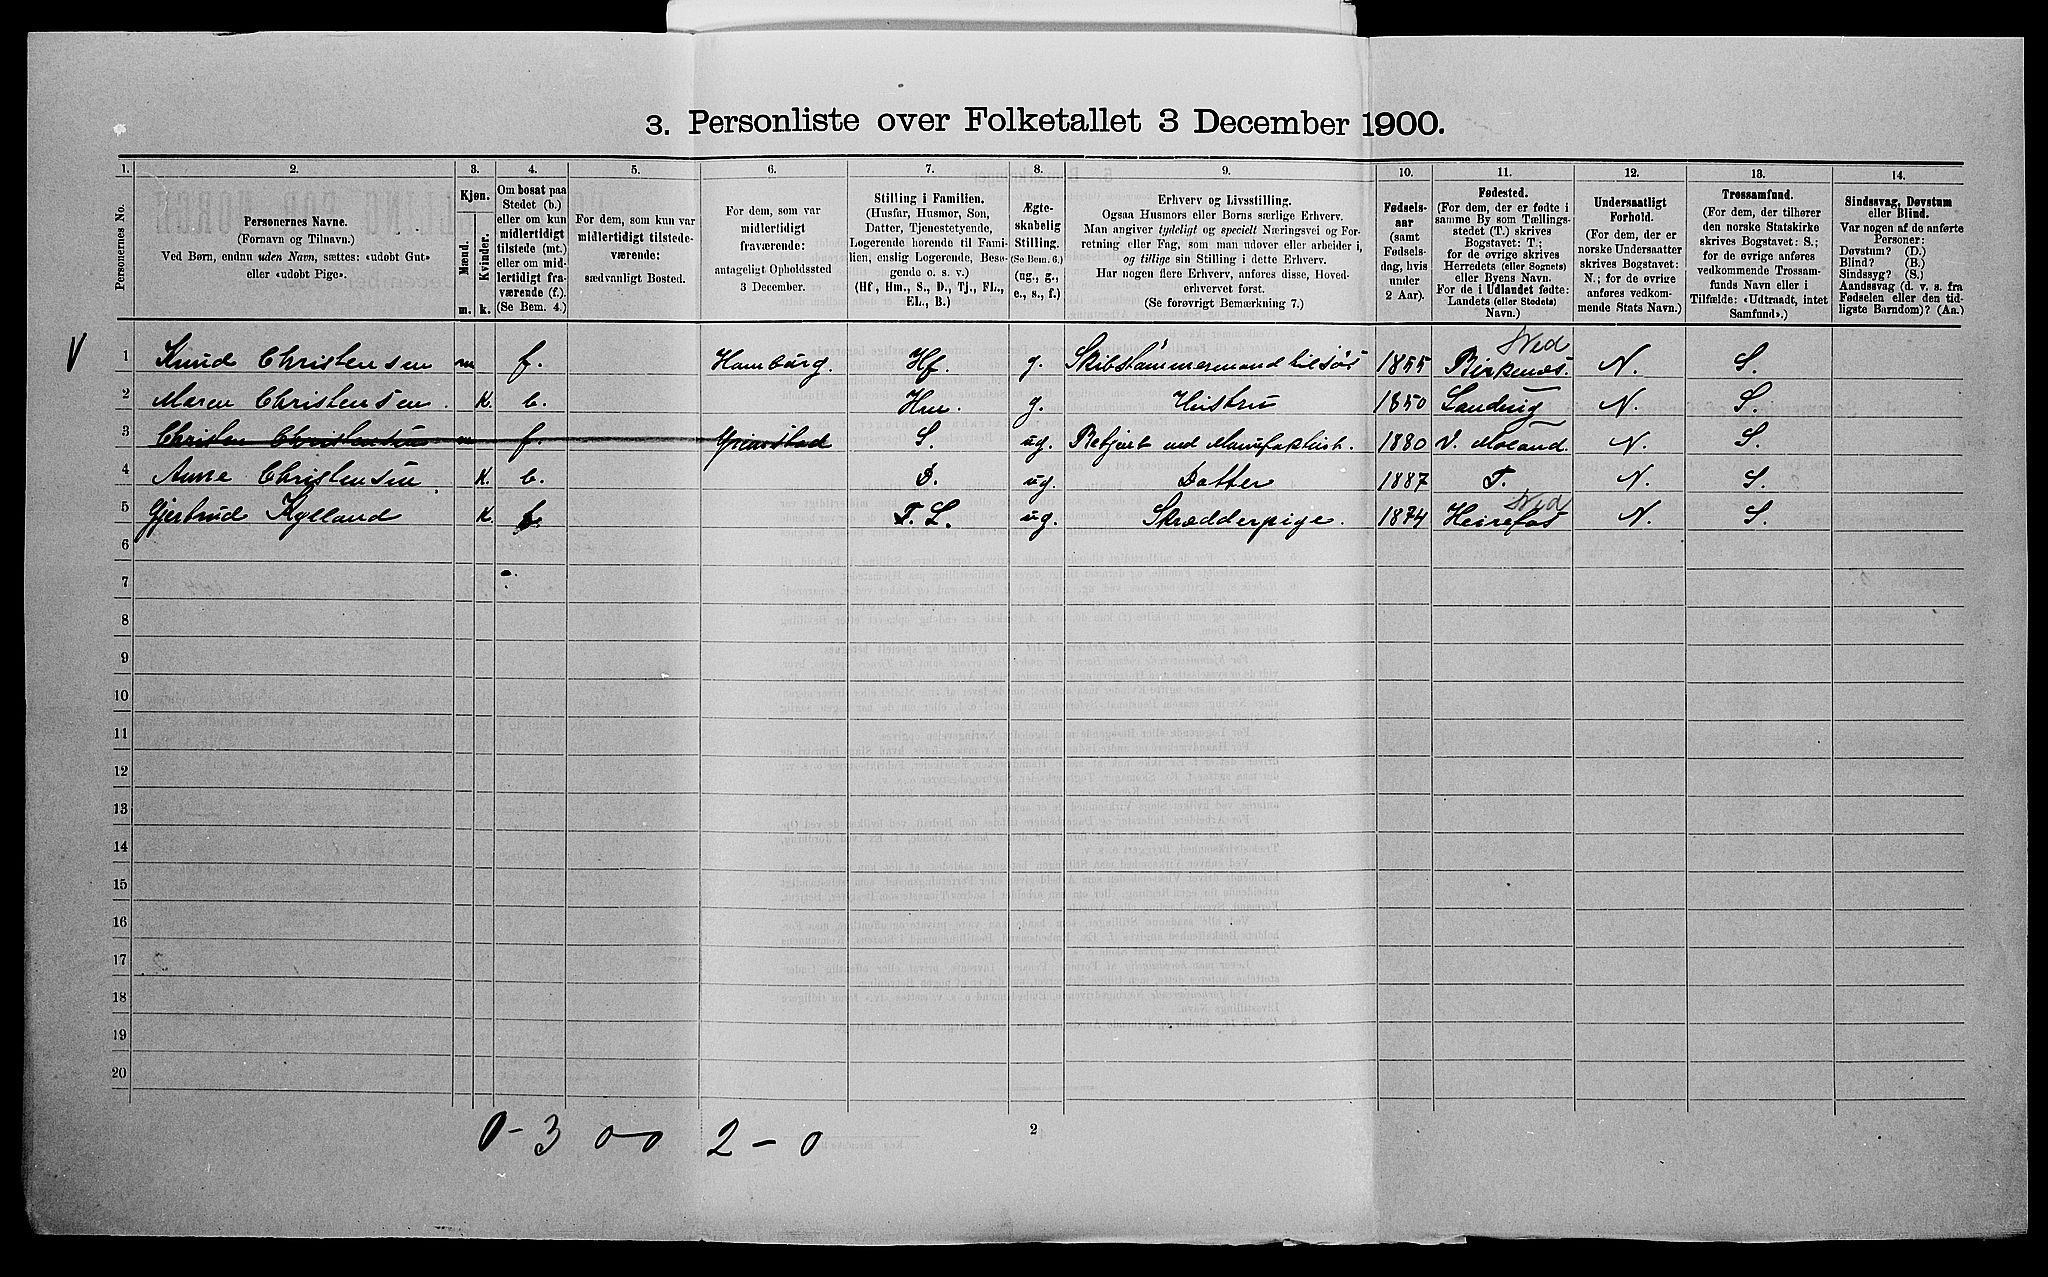 3. Personliste over Folketallet 3 December 1900.
1. 2. 3. 4. 5. 6. 7. 8. 9. 10. 11. 12. 13. 14.
Personernes No.
Personernes Navne.
(Fornavn og Tilnavn.)
Ved Børn, endnu uden Navn, sættes: «udøbt Gut»
eller «udøbt Pige».
Kjøn.
Mænd. Kvinder.
m. k.
Om bosat paa
Stedet (b.)
eller om kun
midlertidigt
tilstede (mt.)
eller om mid-
lertidigt fra-
værende (f.).
(Se Bem. 4.)
For dem, som kun var
midlertidigt tilstede-
værende:
sædvanligt Bosted.
For dem, som var
midlertidigt
fraværende:
antageligt Opholdssted
3 December.
Stilling i Familien.
(Husfar, Husmor, Søn,
Datter, Tjenestetyende,
Logerende hørende til Fami-
lien, enslig Logerende, Besø-
gende o. s. v.)
(Hf, Hm., S., D., Tj., FL.,
EL., B.)
Ægte-
skabelig
Stilling.
(Se Bem. 6.)
(ug., g.,
e., s., f.)
Erhverv og Livsstilling.
Ogsaa Husmors eller Børns særlige Erhverv.
Man angiver tydeligt og specielt Næringsvei og For-
retning eller Fag, som man udover eller arbeider i,
og tillige sin Stilling i dette Erhverv.
Har nogen flere Erhverv, anføres disse, Hoved-
erhvervet først.
(Se forøvrigt Bemærkning 7.)
Fødsels-
aar
(samt
Fødsels-
dag, hvis
under
2 Aar).
Fødested.
(For dem, der er fødte i
samme By som Tællings-
stedet (T.) skrives
Bogstavet: T.;
for de øvrige skrives
Herredets (eller Sognets)
eller Byens Navn.
For de i Udlandet fødte:
Landets (eller Stedets)
Navn.)
Undersaatligt
Forhold.
(For dem, der er
norske Undersaatter
skrives Bogstavet:
N.; for de øvrige
anføres vedkom-
mende Stats Navn.)
Trossamfund.
(For dem, der tilhører
den norske Statskirke
skrives Bogstavet: S.;
for de øvrige anføres
vedkommende Trossam-
funds Navn eller i
Tilfælde: «Udtraadt, intet
Samfund».)
Sindssvag, Døvstum
eller Blind.
Var nogen af de anførte
Personer:
Døvstum? (D.)
Blind? (B.)
Sindssyg? (S.)
Aandssvag (d. v. s. fra
Fødselen eller den tid-
ligste Barndom)? (Aa.)
Ned
V 1 Knud Christensen m f. Hamburg. Hf. g. Skibstømmermand tilsøs 1855 Birkenæs. N. S.
2 Maren Christensen. K. b. Hm. g. Hustru 1850 Landvig N. S.
3 Christen Christensen m f. Grimstad S. ug. Betjent ved Manufakturh. 1880 V. Moland. N. S.
4 Anne Christensen K. b. D. ug. Datter 1887 T. N. S.
Ned
5 Gjertrud Kylland K. b. F. L. ug. Skrædderpige. 1874 Heirefos N. S.
6
7
8
9
10
11
12
13
14
15
16
17
18
19
20
0-3 00 2-0
2